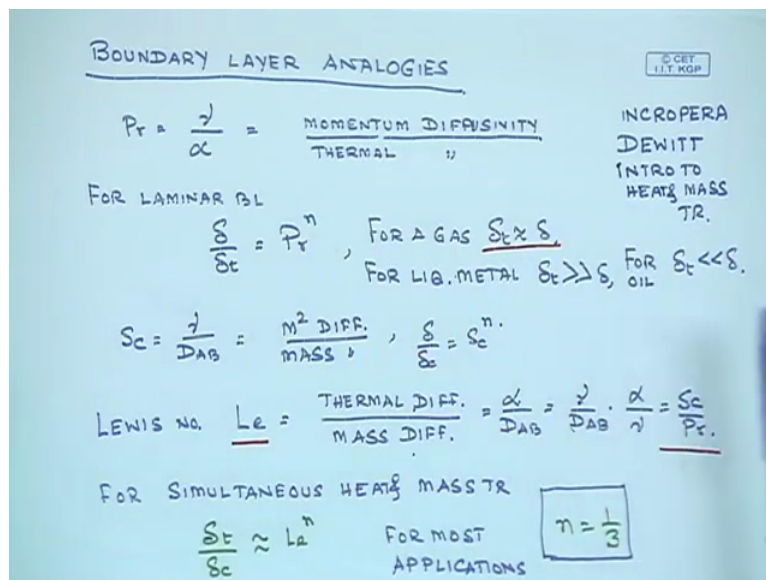 BOUNDARY LAYER ANALOGIES
© CET
I.I.T. KGP
Pr = ν/α = MOMENTUM DIFFUSINITY / THERMAL "
INCROPERA
DEWITT
INTRO TO
HEAT & MASS
TR.
FOR LAMINAR BL
δ/δt = Pr^n , FOR A GAS δt ≈ δ.
FOR LIQ. METAL δt >> δ, FOR OIL δt << δ.
Sc = ν/DAB = M² DIFF. / MASS " , δ/δc = Sc^n.
LEWIS NO. Le = THERMAL DIFF. / MASS DIFF. = α/DAB = ν/DAB · α/ν = Sc/Pr.
FOR SIMULTANEOUS HEAT & MASS TR
δt/δc ≈ Le^n FOR MOST APPLICATIONS n = 1/3